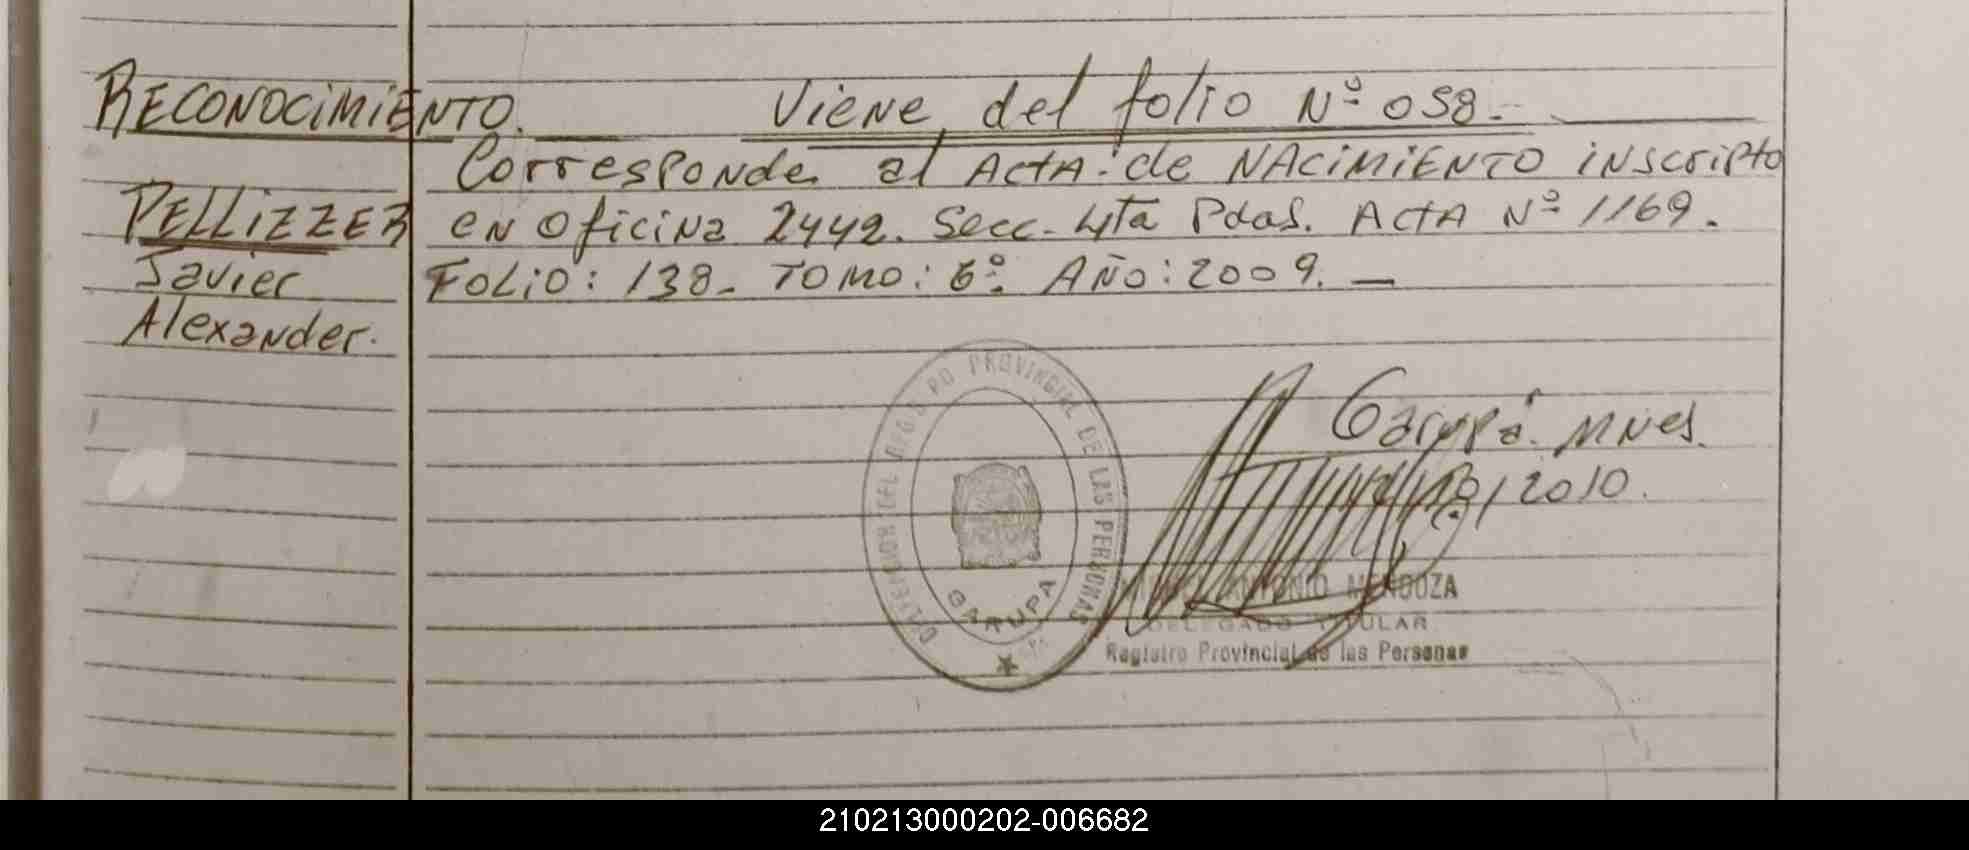 RECONOCIMIENTO. Viene del folio Nº 058.
Corresponde al Acta de NACIMIENTO inscripto
PELLIZZER en Oficina 2442. Secc. 4ta Pdas. Acta Nº 1169.
Javier Folio: 138. TOMO: 6º. Año: 2009.
Alexander.
REGISTRO PROVINCIAL DE LAS PERSONAS
GARUPA
Garupá. Mnes.
2010.
ANTONIO MENDOZA
DELEGADO TITULAR
Registro Provincial de las Personas
210213000202-006682